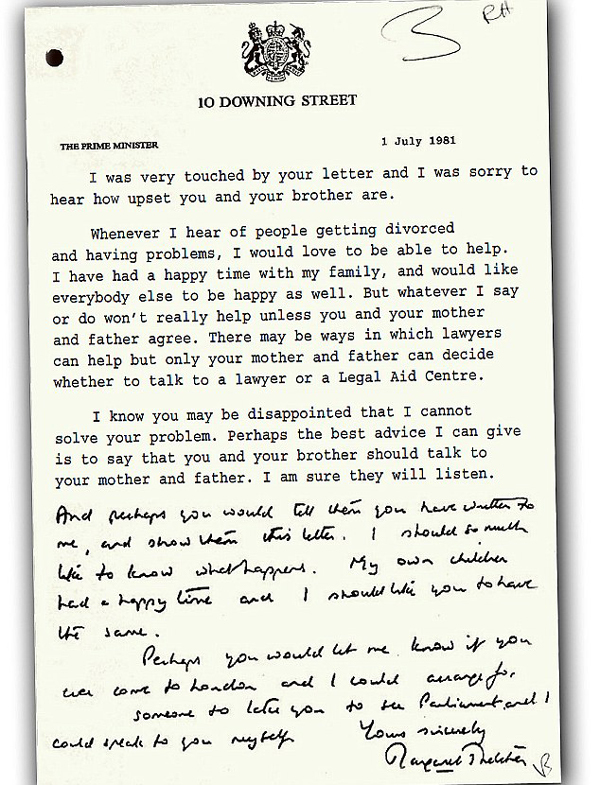 RH
10 DOWNING STREET
THE PRIME MINISTER
1 July 1981
I was very touched by your letter and I was sorry to
hear how upset you and your brother are.
Whenever I hear of people getting divorced
and having problems, I would love to be able to help.
I have had a happy time with my family, and would like
everybody else to be happy as well. But whatever I say
or do won't really help unless you and your mother
and father agree. There may be ways in which lawyers
can help but only your mother and father can decide
whether to talk to a lawyer or a Legal Aid Centre.
I know you may be disappointed that I cannot
solve your problem. Perhaps the best advice I can give
is to say that you and your brother should talk to
your mother and father. I am sure they will listen.
And perhaps you would tell them you have written to
me, and show them this letter. I should so much
like to know what happens. My own children
had a happy time and I should like you to have
the same.
Perhaps you would let me know if you
ever come to London and I could arrange for
someone to take you to see Parliament and I
could speak to you myself
Yours sincerely
Margaret Thatcher